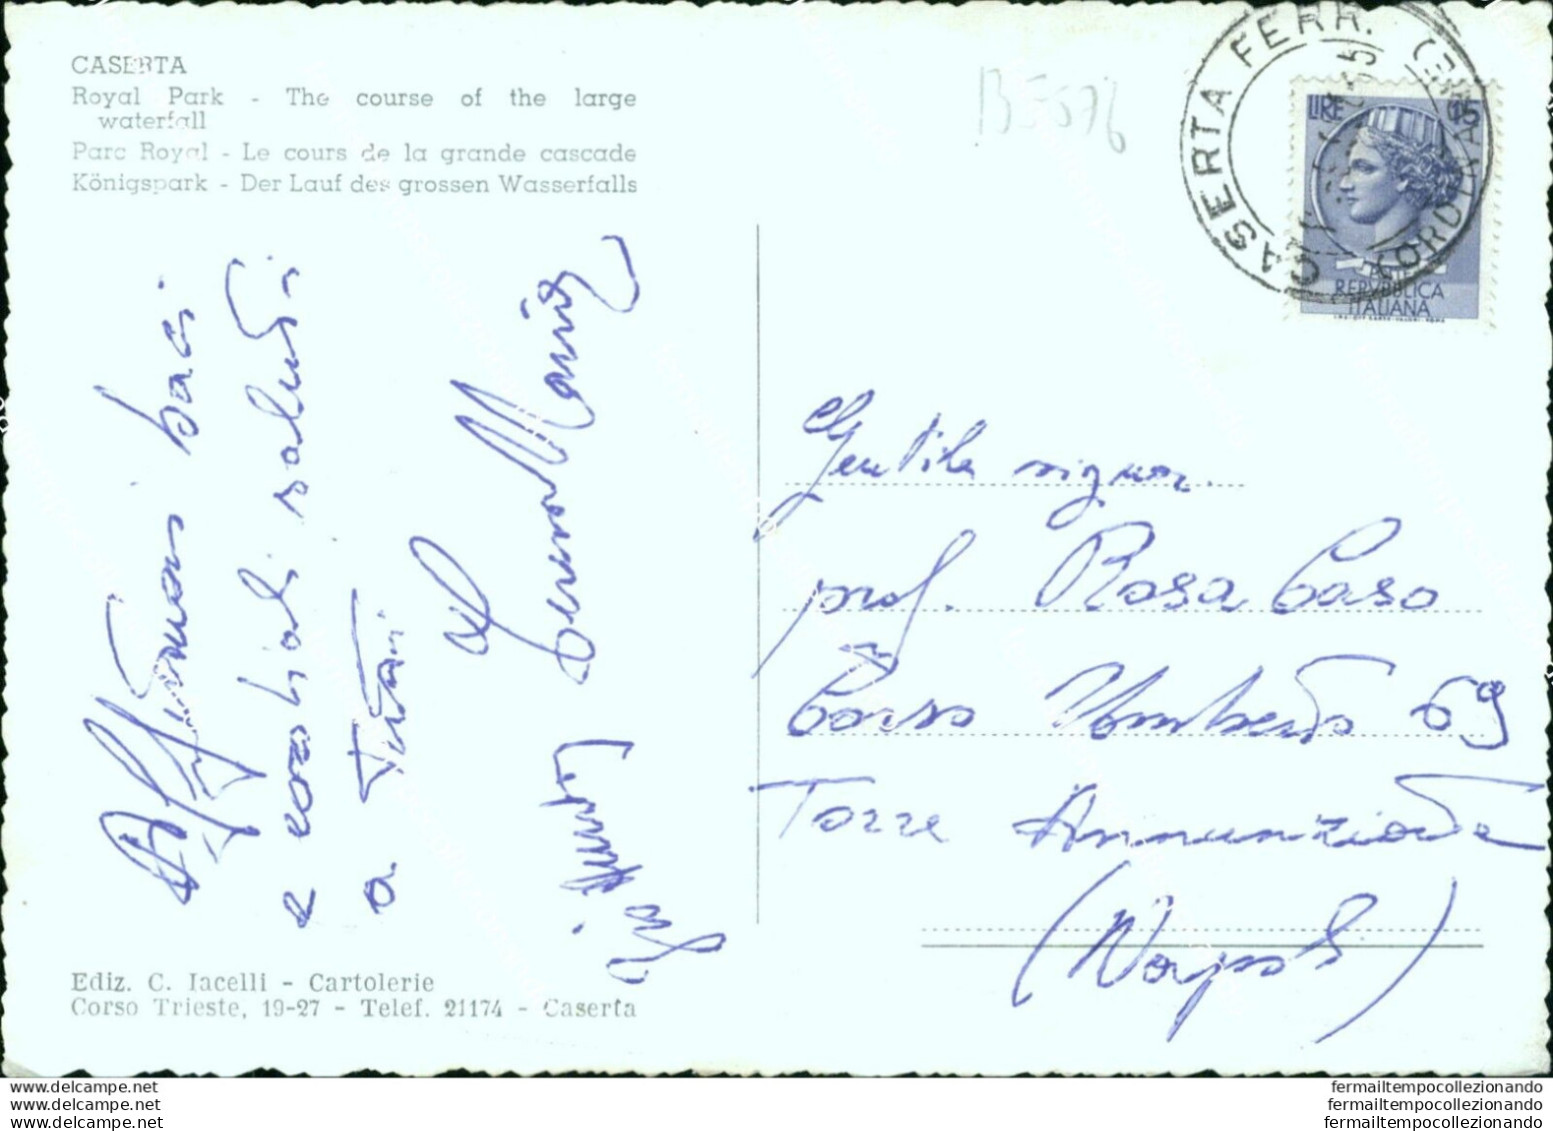 CASERTA
Royal Park - The course of the large
waterfall
Parc Royal - Le cours de la grande cascade
Königspark - Der Lauf des grossen Wasserfalls
BE576
CASERTA FERR.
LIRE 15
POSTE
REPVBBLICA
ITALIANA
Affettuosi baci
e cordiali saluti
a tutti
Zio
Gentile signor.
prof. Rosa Caso
Corso Umberto 69
Torre Annunziata
(Napoli)
Ediz. C. Iacelli - Cartolerie
Corso Trieste, 19-27 - Telef. 21174 - Caserta
www.delcampe.net
www.delcampe.net
www.delcampe.net
fermailtempocollezionando
fermailtempocollezionando
fermailtempocollezionando